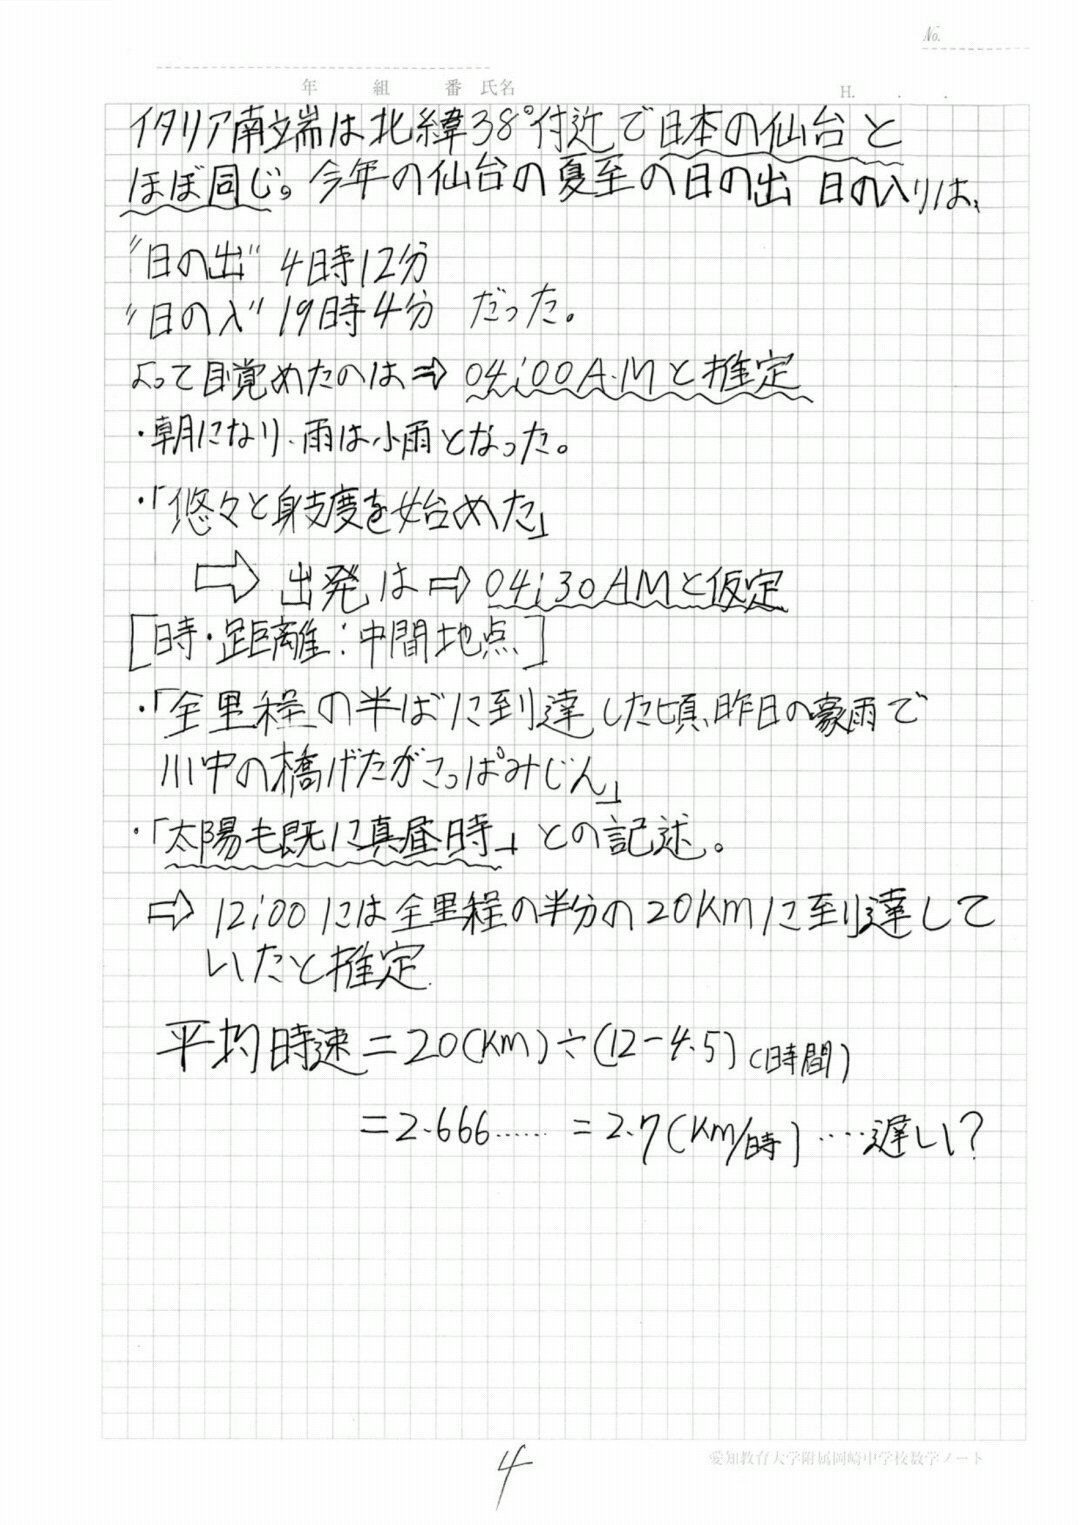 No.
年 組 番 氏名 H. . .
イタリア南端は北緯38°付近で日本の仙台と
ほぼ同じ。今年の仙台の夏至の日の出 日の入りは、
"日の出" 4時12分
"日の入" 19時4分 だった。
よって目覚めたのは⇒04:00A.Mと推定
・朝になり、雨は小雨となった。
・「悠々と身支度を始めた」
⇒ 出発は⇒04:30AMと仮定
[時・距離:中間地点]
・「全里程の半ばに到達した頃、昨日の豪雨で
川中の橋げたがこっぱみじん」
・「太陽も既に真昼時」との記述。
⇒ 12:00には全里程の半分の20Kmに到達して
いたと推定.
平均時速=20(Km)÷(12-4.5)(時間)
=2.666…… =2.7(Km/時)‥‥遅い?
4
愛知教育大学附属岡崎中学校数学ノート